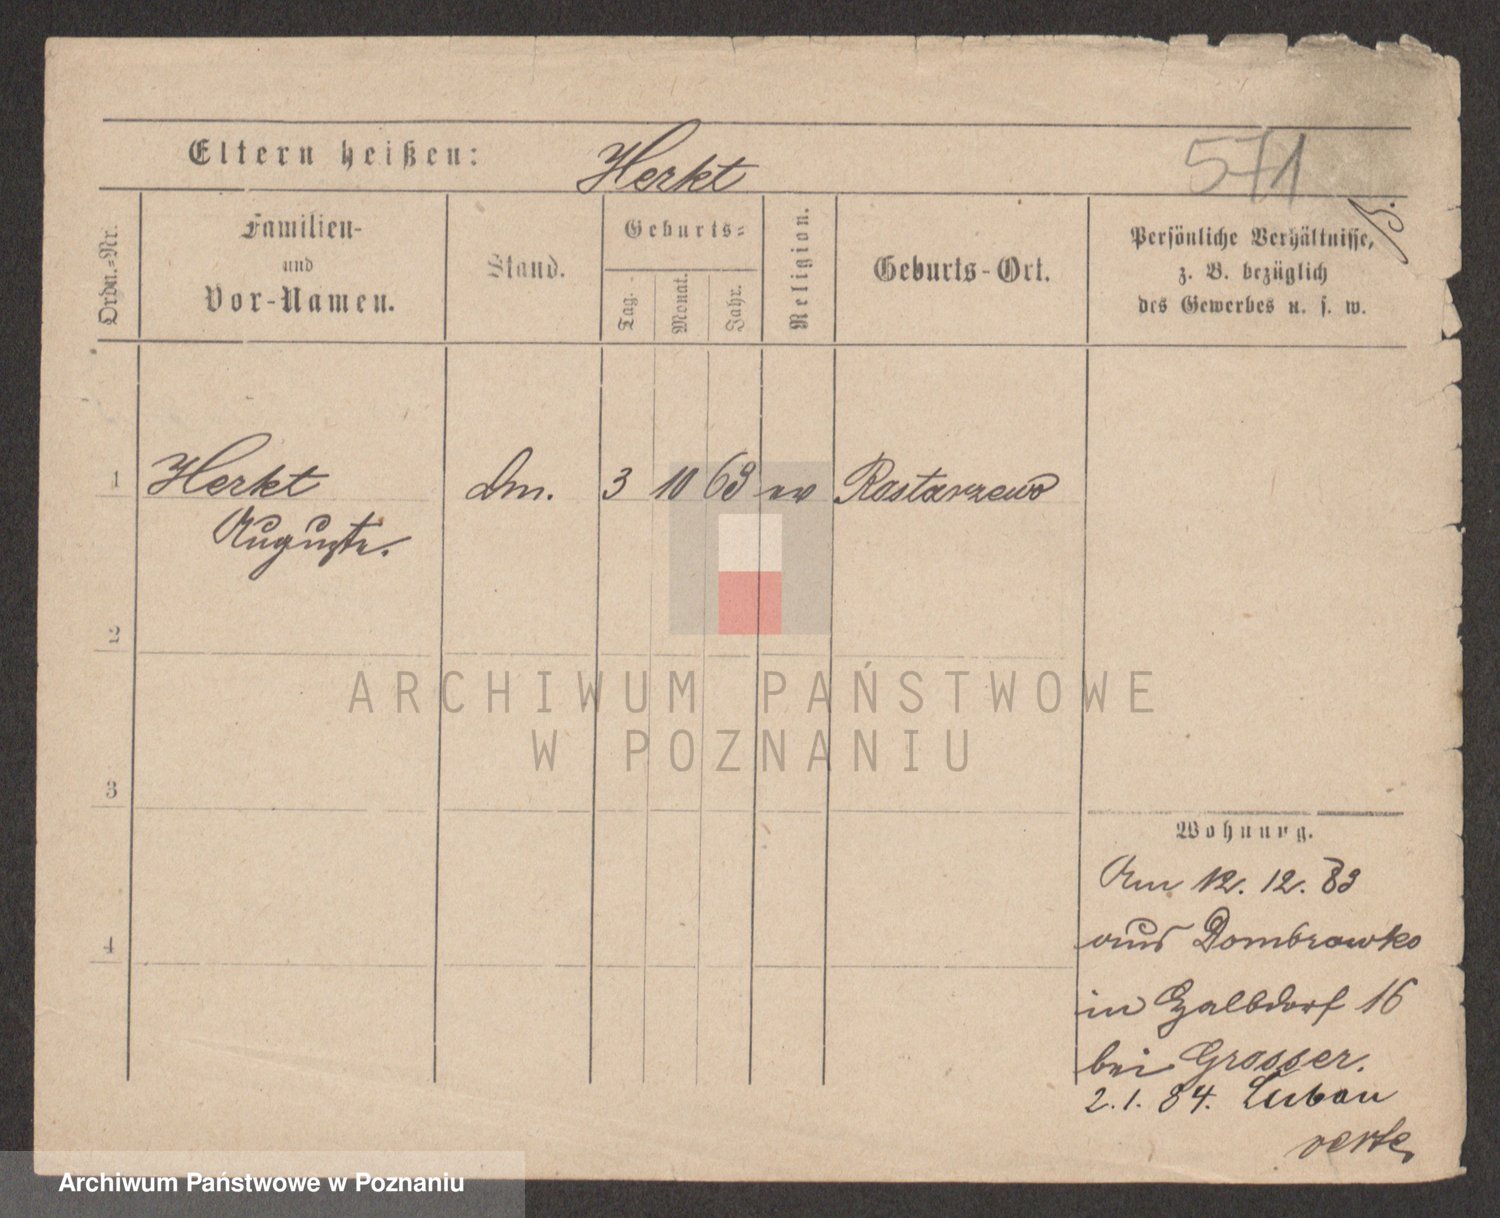 Eltern heißen: Herkt
571
B.
Ordn.-Nr.
Familien-
und
Vor-Namen.
Stand.
Geburts-
Tag.
Monat.
Jahr.
Religion.
Geburts-Ort.
Persönliche Verhältnisse,
z. B. bezüglich
des Gewerbes u. s. w.
1 Herkt Dm. 3 10 63 ev Rostarzewo
Auguste.
2
3
4
Wohnung.
Am 12. 12. 83
aus Dombrowko
in 16
bei Grosser.
2. 1. 84. Luban
verte
ARCHIWUM PAŃSTWOWE
W POZNANIU
Archiwum Państwowe w Poznaniu